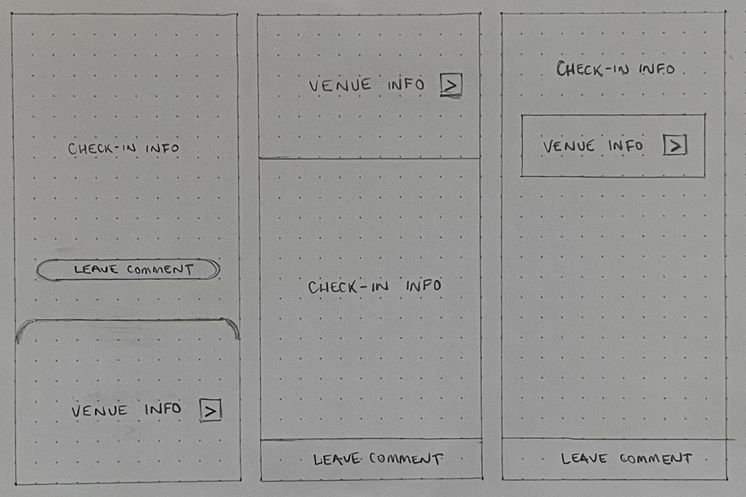 CHECK-IN INFO
LEAVE COMMENT
VENUE INFO >
VENUE INFO >
CHECK-IN INFO
LEAVE COMMENT
CHECK-IN INFO
VENUE INFO >
LEAVE COMMENT